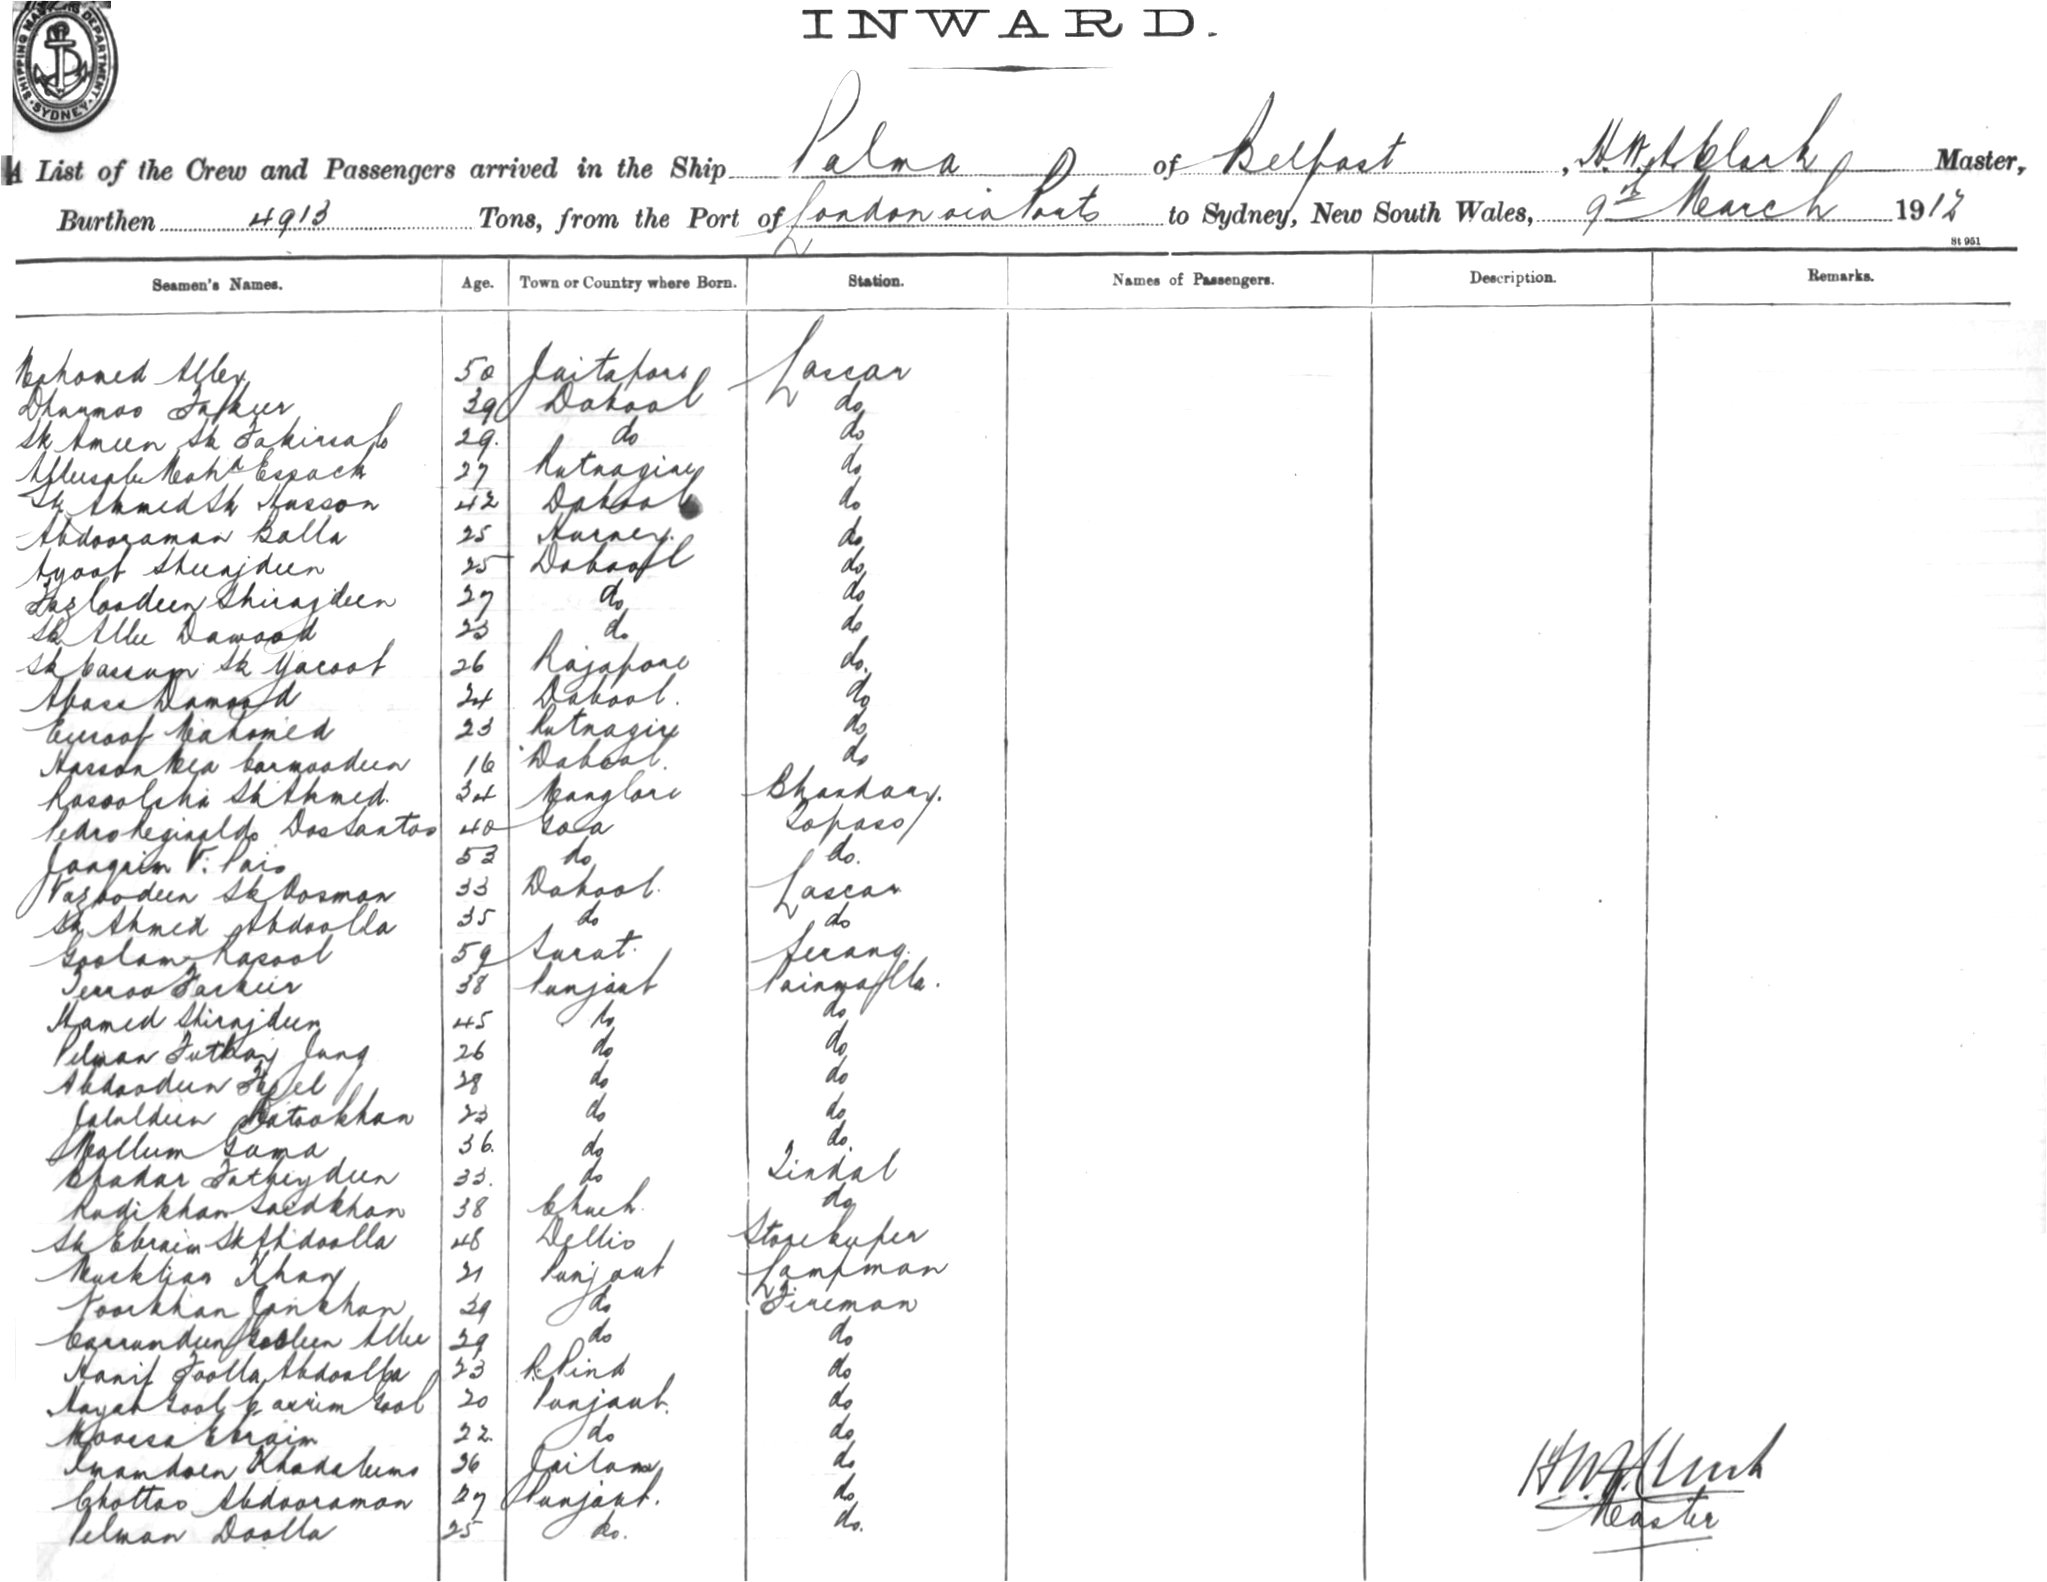 SHIPPING MASTERS DEPARTMENT
SYDNEY
INWARD.
A List of the Crew and Passengers arrived in the Ship Palma of Belfast, H.W.A Clark Master,
Burthen 4913 Tons, from the Port of London via Ports to Sydney, New South Wales, 9th March 1912
St 951
Seamen's Names. Age. Town or Country where Born. Station. Names of Passengers. Description. Remarks.
Mahomed Alley 50 Jaitapore Lascar
Dhurmoo Fakeer 39 Dabool do
Sk Ameen Sk Fakirsab 29. do do
Mahd Essack 27 Rutnagire do
Sk Ahmed Sk Husson 42 Dabool do
Abdooraman Balla 25 Hurney. do
Ayoob Sheerajdeen 25 Dabool do
Fazloodeen Shirajdeen 27 do do
Sk Allee Dawood 23 do do
Sk Cassum Sk Yacoob 26 Rajapore do.
Abass Dawood 24 Dabool. do
Esoof Mahomed 23 Rutnagire do
Hasson Mea Carmoodeen 16 Dabool. do
Rasoolsha Sk Ahmed. 34 Manglore Bhandary.
Pedro Reginaldo DosSantos 40 Goa Topass
Joaquim V. Pais 53 do do.
Nazroodeen Sk Oosman 33 Dabool. Lascar
Sk Ahmed Abdoolla 35 do do
Goolam Rasool 59 Surat. Serang.
Ferroo Fackeer 38 Punjaub Painwalla.
Hamed Shirajdeen 45 do do
Pelwan Futhay Jung 26 do do
Abdoodeen Fazel 28 do do
Jalaldeen Datookhan 23 do do
Mallum Gama 36. do do.
Bhadar Fatheydeen 33. do Tindal
Kadikhan Saidkhan 38 Chuch. do
Sk Ebraim Sk Abdoolla 48 Dellio Storekeeper
Khan 21 Punjaub Lampman
Noorkhan Jankhan 29 do Fireman
Carrumdeen Allee 29 do do
Hanif Foolla Abdoolla 23 R. Pind do
Hayat Gool Carrim Gool 20 Punjaub. do
Moosa Ebraim 22. do do
Imamdeen 26 Jailam do
Chottoo Abdooraman 27 Punjaub. do
Pelwan Doolla 25 do. do.
H.W.A. Clark
Master